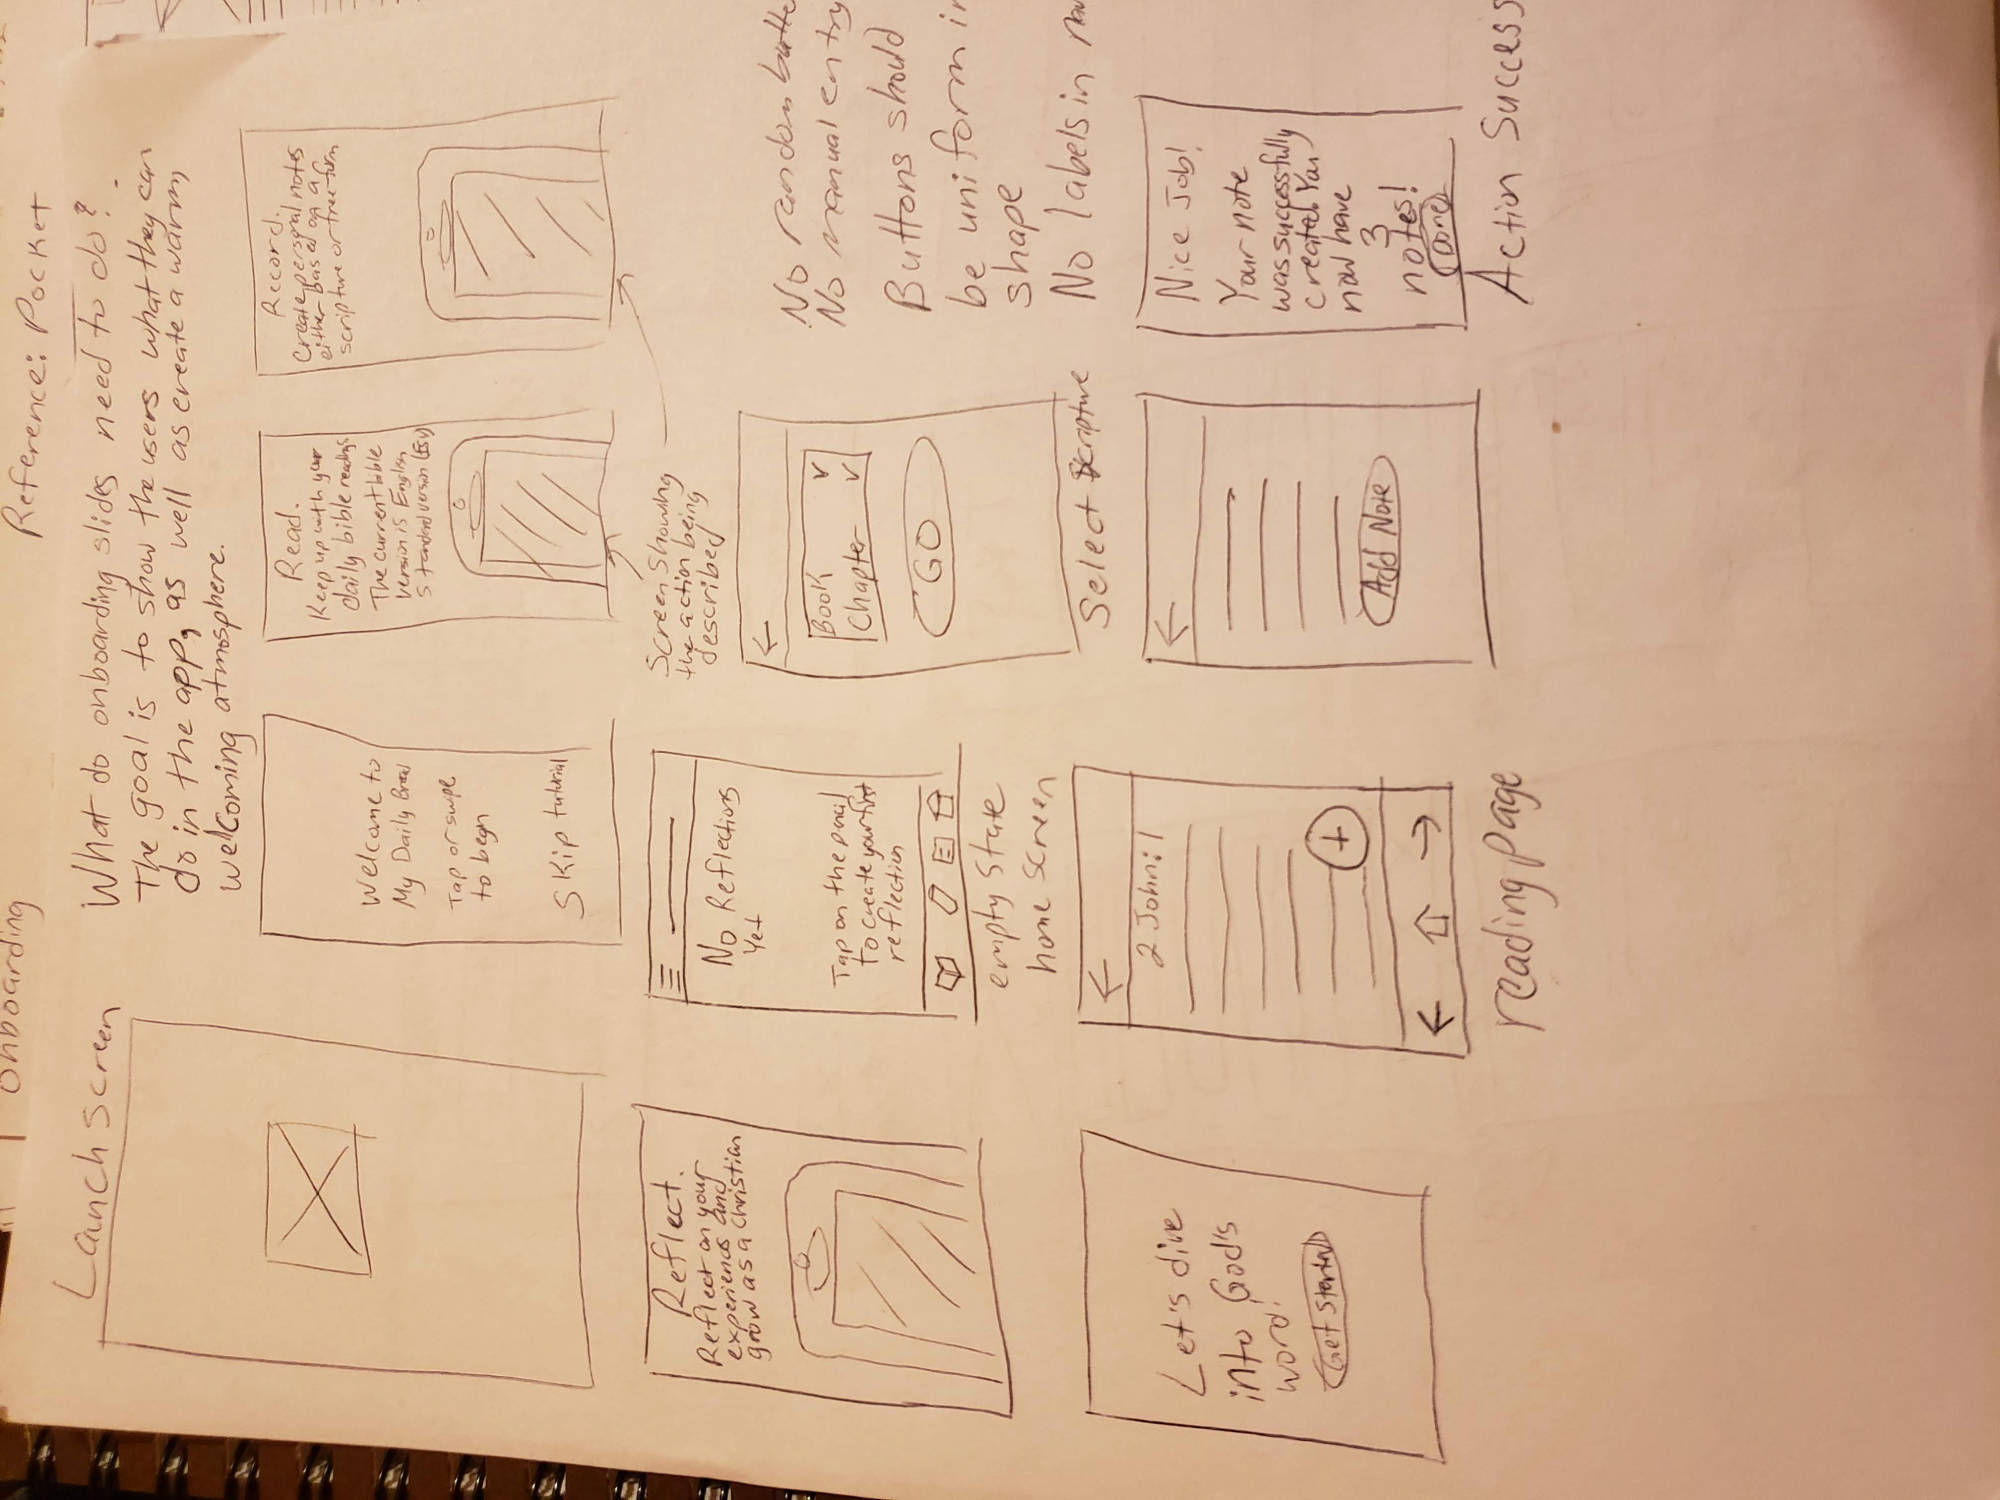 Onboarding
Reference: Pocket
Launch screen
What do onboarding slides need to do?
The goal is to show the users what they can
do in the app, as well as create a warm,
welcoming atmosphere.
Welcome to
My Daily Bread
Tap or swipe
to begin
Skip tutorial
Read.
Keep up with your
daily bible readings
The current bible
version is English
standard version (ESV)
Record.
Create personal notes
either based on a
scripture or free form
Screen showing
the action being
described
Reflect.
Reflect on your
experiences and
grow as a christian
No Reflections
Yet
Tap on the pencil
to create your first
reflection
empty state
home screen
Book
Chapter
GO
Select Scripture
No random
No manual entry
Buttons should
be uniform in
shape
No labels in
Let's dive
into God's
word!
Get Started
2 John: 1
+
reading page
Add Note
Nice Job!
Your note
was successfully
created. You
now have
3
notes!
Done
Action Success